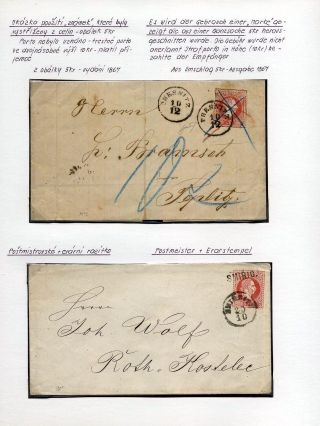 Ukázka použití známek, které byly
vystřiženy z celin - obálek 5kr
Porto nebylo vzato - trestné porto
ve dvojnásobné výši 10kr - platí pří-
jemce
z obálky 5kr - vydání 1867
Es wird der Gebrauch einer Marke ge-
zeigt die aus einer Ganzsache 5kr heraus
geschnitten wurde. Die Gebühr wurde nicht
anerkannt Strafporto in Höhe (10kr) be-
zahlte der Empfänger
Aus Umschlag 5kr - Ausgabe 1867
TREBNITZ
10
12
TREBNITZ
10
12
Herrn
Bramsch
Teplitz
10
Poštmistrovské + erární razítko
Postmeister + Erarstempel
SMIŘIC
10
Herrn
Joh Wolf
Roth. Kosteletz